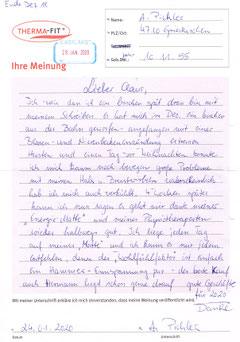 Ende Dez 18
THERMA-FIT®
EINGELANGT
28. JAN. 2020
Name: A. Pichler
PLZ/Ort: 4710 Grieskirchen
Geb.Dat.: 10.11.55
Ihre Meinung
Liebe Clair,
Ich bin dan ist ein bischen spät dran bin mit
meinem Schreiben es hat mich im Dez. ein bischen
aus der Bahn geworfen angefangen mit einer
Blasen- und Nierenbeckenentzündung extremen
Husten und einen Tag vor Weihnachten konnte
ich mich kaum noch bewegen große Probleme
mit meinen Hals u. Brustwirbeln wahrscheinlich
hab ich mich auch verkühlt, 4 Wochen später
kann ich nur sagen es geht mir dank meiner
"Energie-Matte" und meiner Physiotherapeutin
wieder halbwegs gut. Ich liege jeden Tag
auf meiner "Matte" und ich kann es nur jedem
empfehlen, denn der "Wohlfühlfaktor" ist einfach
ein Hammer - Entspannung pur - der beste Kauf
auch Hermann liegt schon gerne darauf gute Geschäfte
für 2020
Danke
Mit meiner Unterschrift erkläre ich mich einverstanden, dass meine Meinung veröffentlicht wird.
24.01.2020
A. Pichler
Datum
Unterschrift